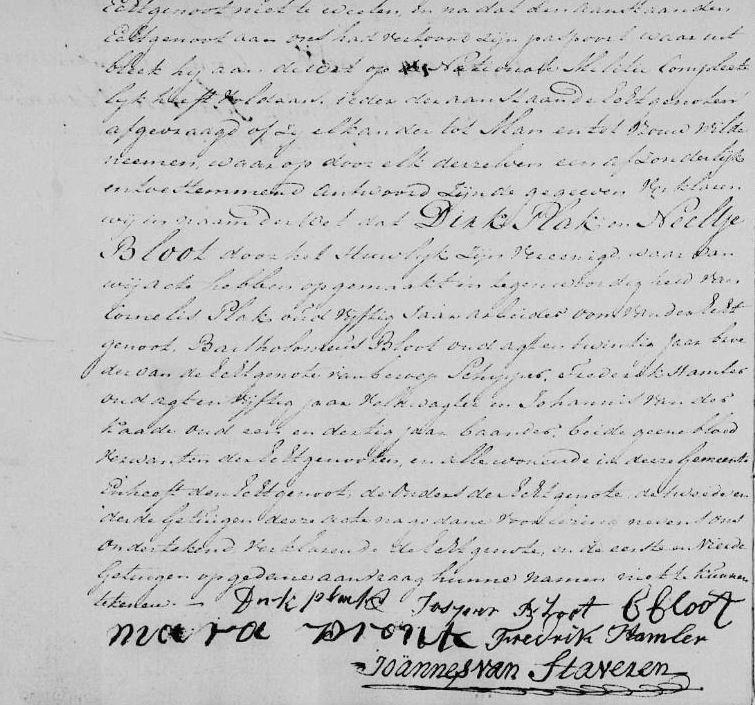 Echtgenoot niet te weeten, En na dat den aanstaanden
Echtgenoot aan ons had vertoond zijn paspoort waar uit
bleek hij aan de wet op de Nationale Militie Compleete
lijk heeft voldaan, ieder der aanstaande Echtgenoten
afgevraagd of zij elkander tot Man en tot Vrouw wilde
neemen, waar op door elk derzelven een afzonderlijk
en toestemmend antwoord zijnde gegeeven Verklaren
wij in naam der Wet dat Dirk Plak en Neeltje
Bloot door het Huwlijk zijn Vereenigd, waar van
wij acte hebben opgemaakt in tegenwoordigheid van
Cornelis Plak oud Vijftig Jaar arbeider oom van der Echt
genoot, Bartholomeus Bloot oud agt en twintig Jaar broe
der van de Echtgenote van beroep Schipper, Frederik Hamler
oud agt en Vijftig jaar Veldwagter en Johannis van der
Kaade oud een en dertig jaar baander, beide geene bloed
verwanten der Echtgenooten, en alle wonende in deeze Gemeente
En heeft den Echtgenoot, de ouders der Echtgenote, de tweede en
derde Getuigen deeze acte na gedane Voorlezing nevens ons
ondertekend Verklarende de Echtgenote, en de eerste en Vierde
Getuigen op gedane aanvraag hunne namen niet te kunnen
tekenen. –
Dirk plak Jasper Bloot B bloot
mara Pronk Fredrik Hamler
Joännes van Staveren